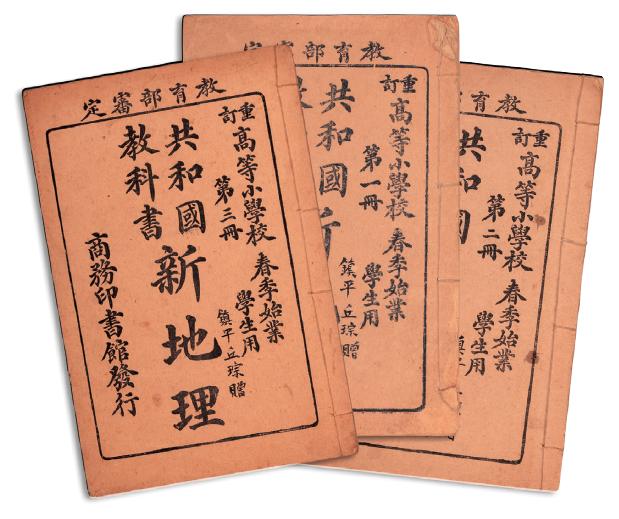 教育部審定
重訂
高等小學校 春季始業
第三冊 學生用
鎮平丘琮贈
共和國
教科書
新地理
商務印書館發行
教育部審定
重訂
高等小學校 春季始業
第一冊 學生用
鎮平丘琮贈
共和國新
教育
重訂
高等小學校 春季始業
第二冊 學生用
鎮平
共和國